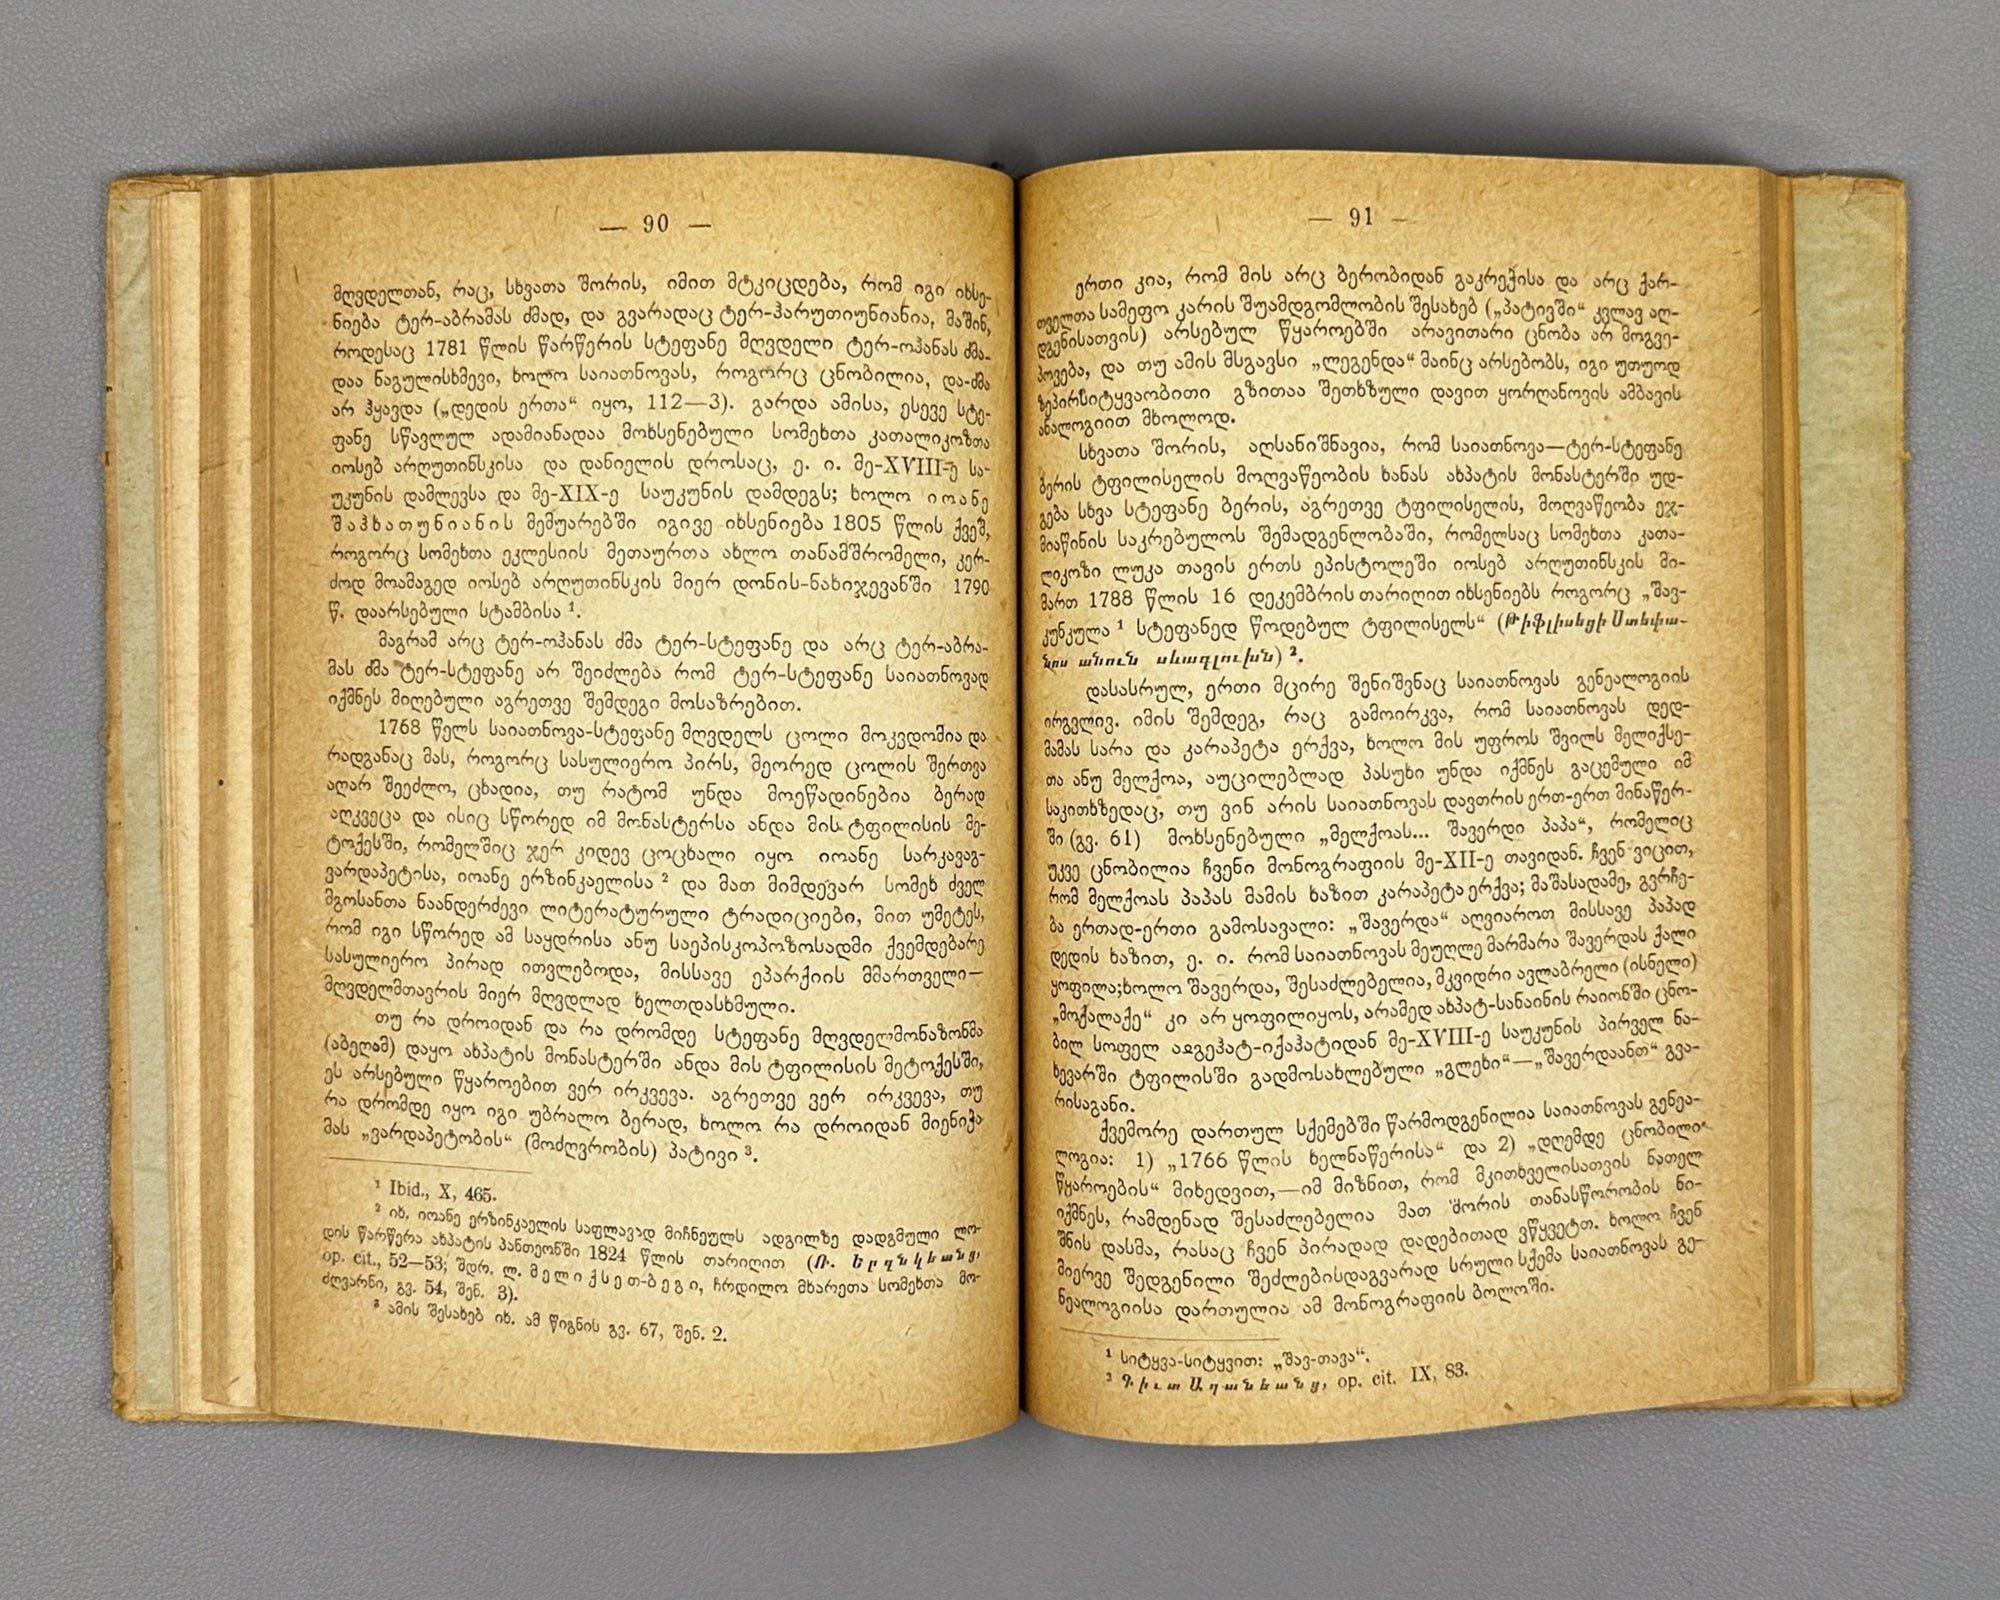 — 90 —
მღვდელთან, რაც, სხვათა შორის, იმით მტკიცდება, რომ იგი იხსე-
ნიება ტერ-აბრამას ძმად, და გვარადაც ტერ-ჰარუთიუნიანია, მაშინ,
როდესაც 1781 წლის წარწერის სტეფანე მღვდელი ტერ-ოჰანას ძმა-
დაა ნაგულისხმევი, ხოლო საიათნოვას, როგორც ცნობილია, და-ძმა
არ ჰყავდა („დედის ერთა“ იყო, 112—3). გარდა ამისა, ესევე სტე-
ფანე სწავლულ ადამიანადაა მოხსენებული სომეხთა კათალიკოზთა
იოსებ არღუთინსკისა და დანიელის დროსაც, ე. ი. მე-XVIII-ე სა-
უკუნის დამლევსა და მე-XIX-ე საუკუნის დამდეგს; ხოლო იოანე
შაჰხათუნიანის მემუარებში იგივე იხსენიება 1805 წლის ქვეშ,
როგორც სომეხთა ეკლესიის მეთაურთა ახლო თანამშრომელი, კერ-
ძოდ მოამაგედ იოსებ არღუთინსკის მიერ დონის-ნახიჯევანში 1790
წ. დაარსებული სტამბისა ¹.
მაგრამ არც ტერ-ოჰანას ძმა ტერ-სტეფანე და არც ტერ-აბრა-
მას ძმა ტერ-სტეფანე არ შეიძლება რომ ტერ-სტეფანე საიათნოვად
იქმნეს მიღებული აგრეთვე შემდეგი მოსაზრებით.
1768 წელს საიათნოვა-სტეფანე მღვდელს ცოლი მოკვდომია და
რადგანაც მას, როგორც სასულიერო პირს, მეორედ ცოლის შერთვა
აღარ შეეძლო, ცხადია, თუ რატომ უნდა მოეწადინებია ბერად
აღკვეცა და ისიც სწორედ იმ მონასტერსა ანდა მის ტფილისის მე-
ტოქესში, რომელშიც ჯერ კიდევ ცოცხალი იყო იოანე სარკავაგ-
ვარდაპეტისა, იოანე ერზინკაელისა ² და მათ მიმდევარ სომეხ ძველ
მგოსანთა ნაანდერძევი ლიტერატურული ტრადიციები, მით უმეტეს,
რომ იგი სწორედ ამ საყდრისა ანუ საეპისკოპოზოსადმი ქვემდებარე
სასულიერო პირად ითვლებოდა, მისსავე ეპარქიის მმართველი—
მღვდელმთავრის მიერ მღვდლად ხელთდასხმული.
თუ რა დროიდან და რა დრომდე სტეფანე მღვდელმონაზონმა
(აბეღამ) დაყო ახპატის მონასტერში ანდა მის ტფილისის მეტოქესში,
ეს არსებული წყაროებით ვერ ირკვევა. აგრეთვე ვერ ირკვევა, თუ
რა დრომდე იყო იგი უბრალო ბერად, ხოლო რა დროიდან მიენიჭა
მას „ვარდაპეტობის“ (მოძღვრობის) პატივი ³.
¹ Ibid., X, 465.
² იხ. იოანე ერზინკაელის საფლავად მიჩნეულს ადგილზე დადგმული ლო-
დის წარწერა ახპატის პანთეონში 1824 წლის თარიღით (Ռ. Երզնկեանց,
op. cit., 52—53; შდრ. ლ. მელიქსეთ-ბეგი, ჩრდილო მხარეთა სომეხთა მო-
ძღვარნი, გვ. 54, შენ. 3).
³ ამის შესახებ იხ. ამ წიგნის გვ. 67, შენ. 2.
— 91 —
ერთი კია, რომ მის არც ბერობიდან გაკრეჭისა და არც ქარ-
თველთა სამეფო კარის შუამდგომლობის შესახებ („პატივში“ კვლავ აღ-
დგენისათვის) არსებულ წყაროებში არავითარი ცნობა არ მოგვე-
პოვება, და თუ ამის მსგავსი „ლეგენდა“ მაინც არსებობს, იგი უთუოდ
ზეპირსიტყვაობითი გზითაა შეთხზული დავით ყორღანოვის ამბავის
ანალოგიით მხოლოდ.
სხვათა შორის, აღსანიშნავია, რომ საიათნოვა—ტერ-სტეფანე
ბერის ტფილისელის მოღვაწეობის ხანას ახპატის მონასტერში უდ-
გება სხვა სტეფანე ბერის, აგრეთვე ტფილისელის, მოღვაწეობა ეჯ-
მიაწინის საკრებულოს შემადგენლობაში, რომელსაც სომეხთა კათა-
ლიკოზი ლუკა თავის ერთს ეპისტოლეში იოსებ არღუთინსკის მი-
მართ 1788 წლის 16 დეკემბრის თარიღით იხსენიებს როგორც „შავ-
კუნკულა ¹ სტეფანედ წოდებულ ტფილისელს“ (Թիֆլիսեցի Ստեփա-
նոս անուն սևագլուխն) ².
დასასრულ, ერთი მცირე შენიშვნაც საიათნოვას გენეალოგიის
ირგვლივ. იმის შემდეგ, რაც გამოირკვა, რომ საიათნოვას დედ-
მამას სარა და კარაპეტა ერქვა, ხოლო მის უფროს შვილს მელიქსე-
თა ანუ მელქოა, აუცილებლად პასუხი უნდა იქმნეს გაცემული იმ
საკითხზედაც, თუ ვინ არის საიათნოვას დავთრის ერთ-ერთ მინაწერ-
ში (გვ. 61) მოხსენებული „მელქოას... შავერდი პაპა“, რომელიც
უკვე ცნობილია ჩვენი მონოგრაფიის მე-XII-ე თავიდან. ჩვენ ვიცით,
რომ მელქოას პაპას მამის ხაზით კარაპეტა ერქვა; მაშასადამე, გვრჩე-
ბა ერთად-ერთი გამოსავალი: „შავერდა“ აღვიაროთ მისსავე პაპად
დედის ხაზით, ე. ი. რომ საიათნოვას მეუღლე მარმარა შავერდას ქალი
ყოფილა; ხოლო შავერდა, შესაძლებელია, მკვიდრი ავლაბრელი (ისნელი)
„მოქალაქე“ კი არ ყოფილიყოს, არამედ ახპატ-სანაინის რაიონში ცნო-
ბილ სოფელ აჲგეჰატ-იქაჰატიდან მე-XVIII-ე საუკუნის პირველ ნა-
ხევარში ტფილისში გადმოსახლებული „გლეხი“—„შავერდაანთ“ გვა-
რისაგანი.
ქვემორე დართულ სქემებში წარმოდგენილია საიათნოვას გენეა-
ლოგია: 1) „1766 წლის ხელნაწერისა“ და 2) „დღემდე ცნობილი
წყაროების“ მიხედვით,—იმ მიზნით, რომ მკითხველისათვის ნათელ
იქმნეს, რამდენად შესაძლებელია მათ შორის თანასწორობის ნი-
შნის დასმა, რასაც ჩვენ პირადად დადებითად ვწყვეტთ. ხოლო ჩვენ
მიერვე შედგენილი შეძლებისდაგვარად სრული სქემა საიათნოვას გე-
ნეალოგიისა დართულია ამ მონოგრაფიის ბოლოში.
¹ სიტყვა-სიტყვით: „შავ-თავა“.
² Գիւտ Աղանեանց, op. cit. IX, 83.